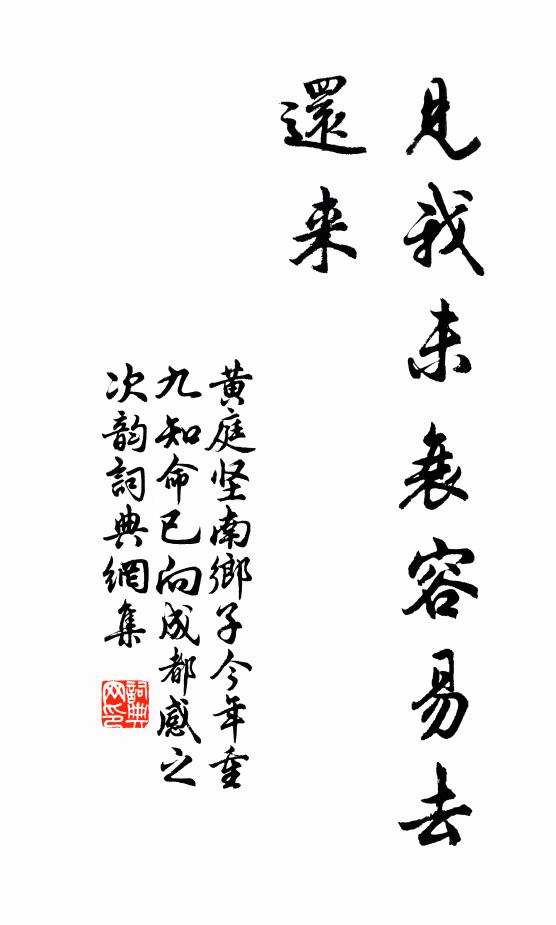 見我未衰容易去
還来
黄庭坚南鄉子今年重
九知命已向成都感之
次韵詞典網集
詞典
网印